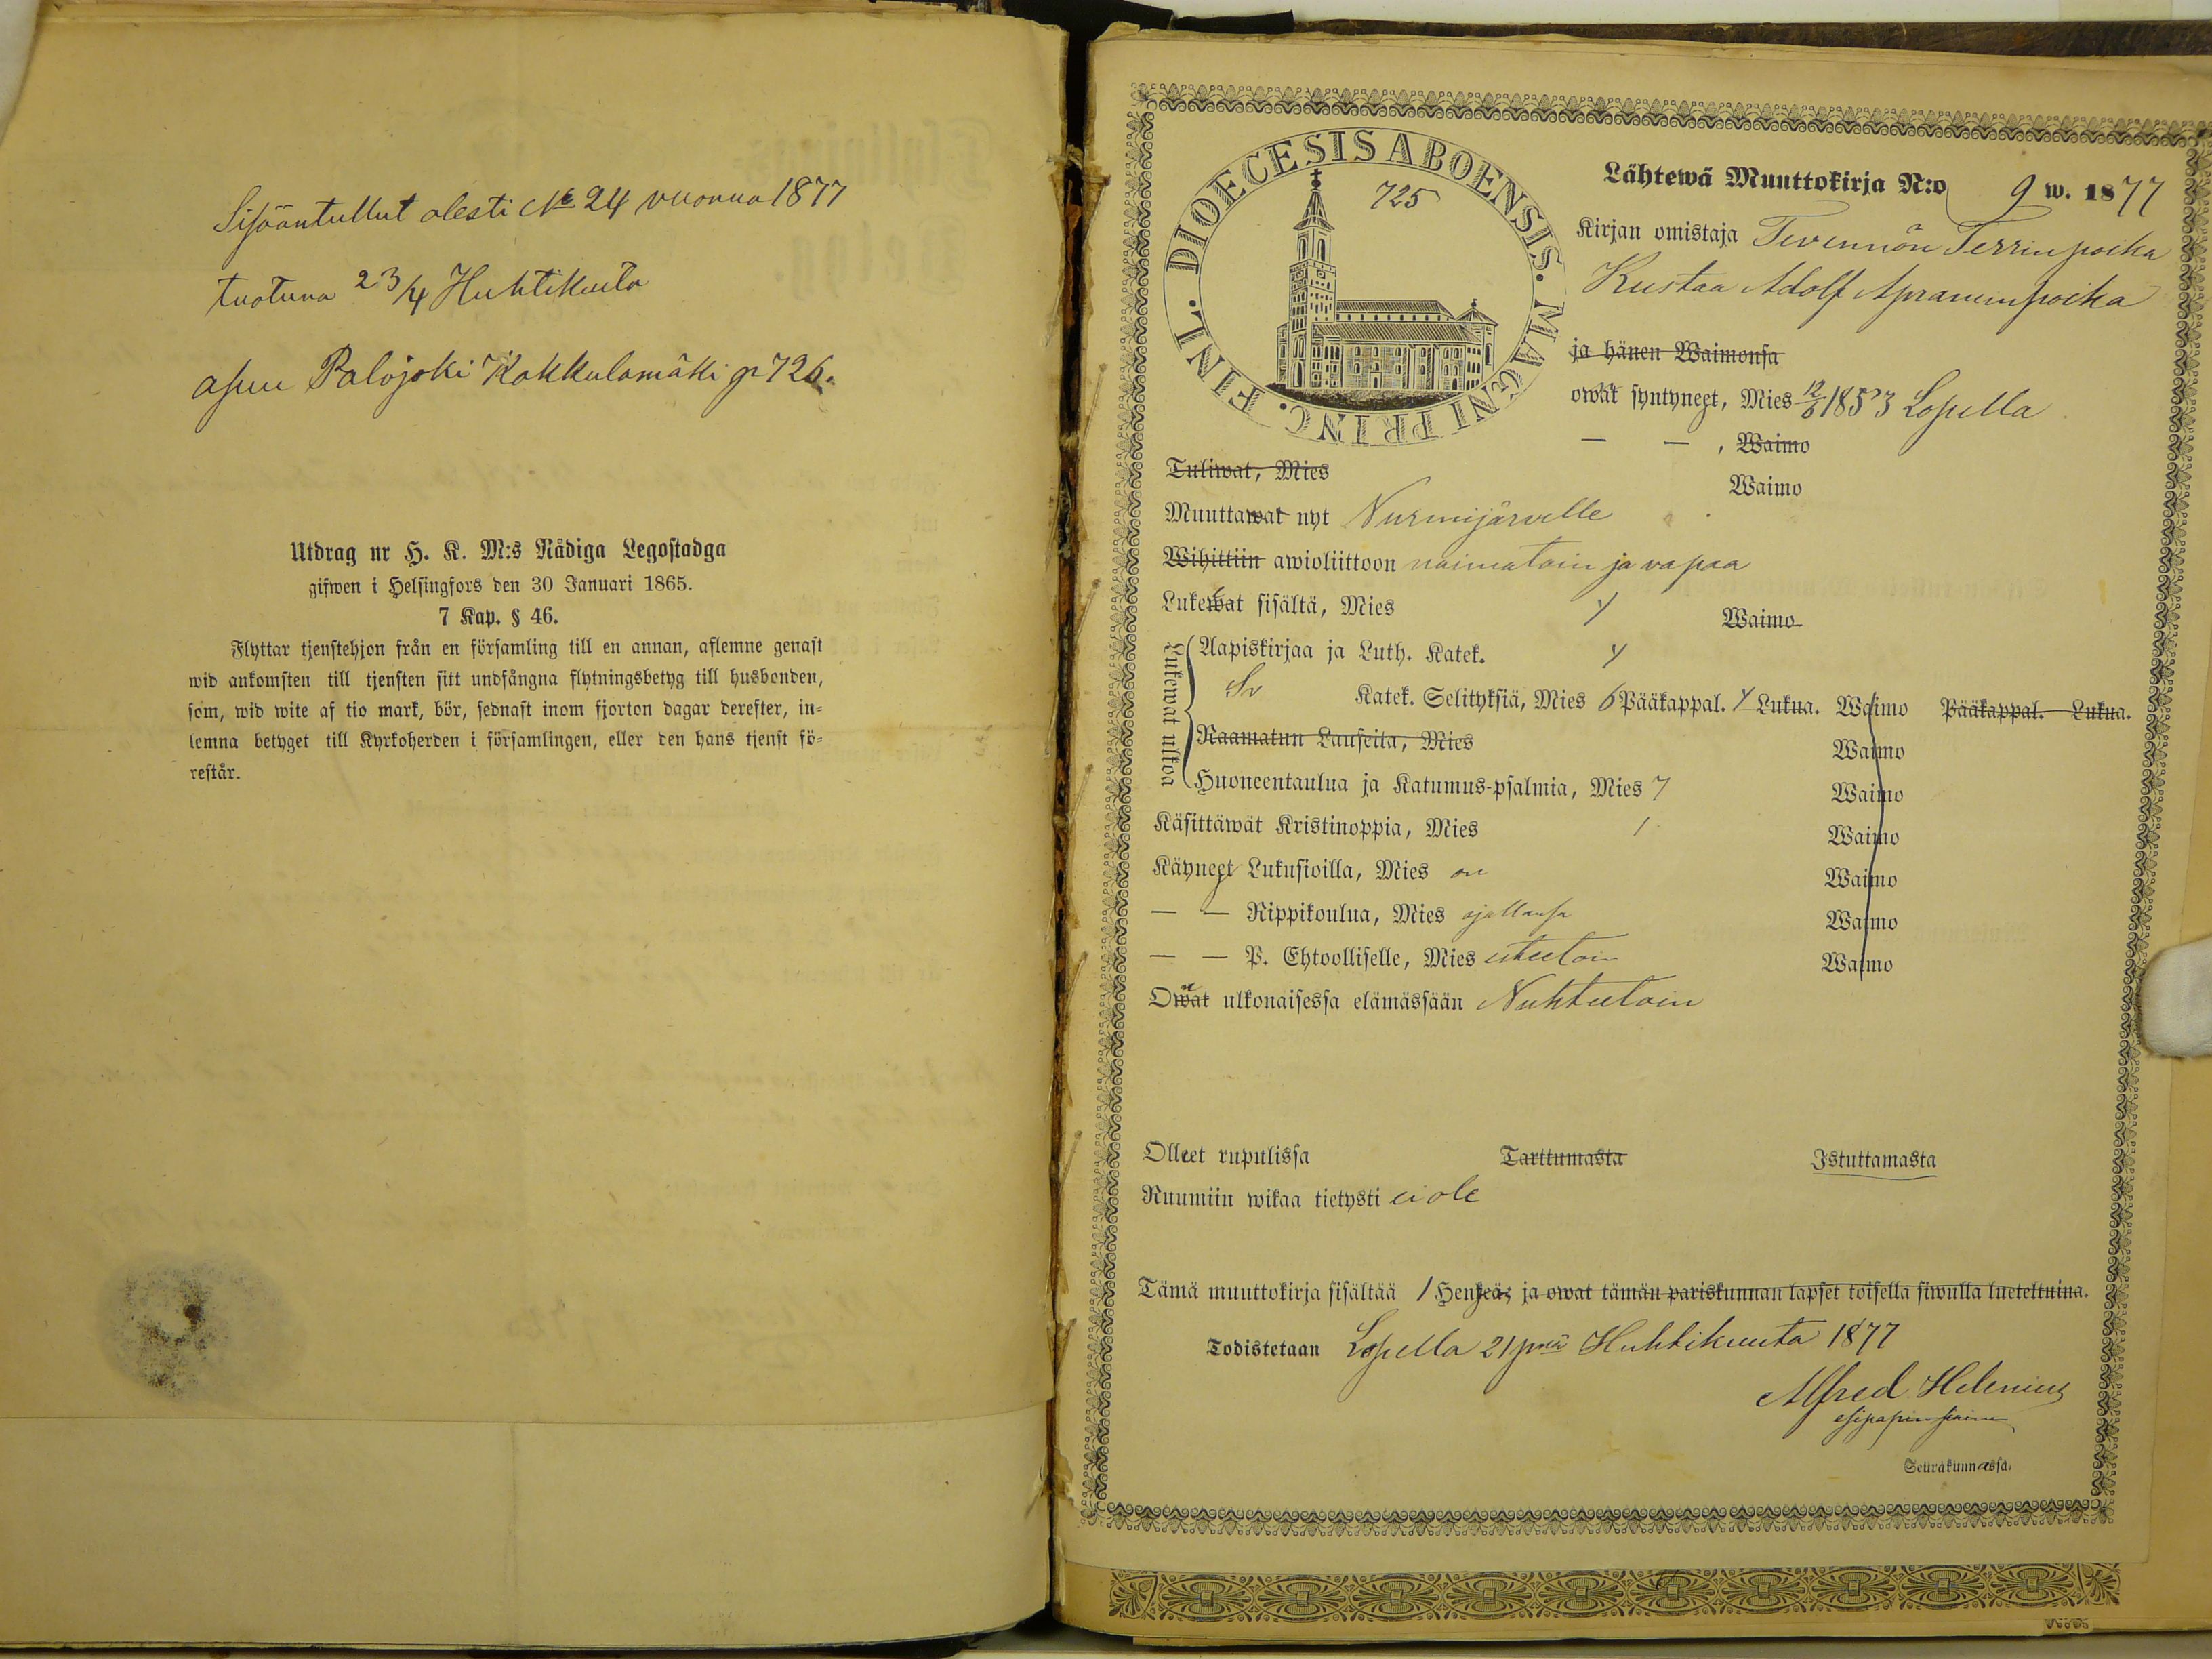 Sisääntullut alesti No 24 vuonna 1877
tuotuna 23/4 Huhtikuuta
asuu Palojoki Kokkulamäki p 726.
Utdrag ur H. K. M:s Nådiga Legostadga
gifwen i Helsingfors den 30 Januari 1865.
7 Kap. § 46.
Flyttar tjenstehjon från en församling till en annan, aflemne genast
wid ankomsten till tjensten sitt undfångna flytningsbetyg till husbonden,
som, wid wite af tio mark, bör, sednast inom fjorton dagar derefter, in-
lemna betyget till Kyrkoherden i församlingen, eller den hans tjenst fö-
restår.
DIOECESIS ABOENSIS. MAGNI PRINC. FINL.
725
Lähtewä Muuttokirja N:o 9 w. 1877
Kirjan omistaja Tevännön Terrin poika
Kustaa Adolf Apraminpoika
ja hänen Waimonsa
owat syntyneet, Mies 12/6 1853 Lopella
— — , Waimo
Tuliwat, Mies Waimo
Muuttawat nyt Nurmijärvelle
Wihittiin awioliittoon naimatoin ja vapaa
Lukewat sisältä, Mies y Waimo
Lukewat ulkoa
Aapiskirjaa ja Luth. Katek. y
Sv Katek. Selityksiä, Mies 6 Pääkappal. y Lukua. Waimo Pääkappal. Lukua.
Raamatun Lauseita, Mies Waimo
Huoneentaulua ja Katumus-psalmia, Mies 7 Waimo
Käsittäwät Kristinoppia, Mies 1 Waimo
Käyneet Lukusioilla, Mies on Waimo
— — Rippikoulua, Mies ajallansa Waimo
— — P. Ehtoolliselle, Mies esteetoin Waimo
Owat ulkonaisessa elämässään Nuhteetoin
Olleet rupulissa Tarttumasta Istuttamasta
Ruumiin wikaa tietysti ei ole
Tämä muuttokirja sisältää 1 Henkeä; ja owat tämän pariskunnan lapset toisella siwulla lueteltuina.
Todistetaan Lopella 21 pnä Huhtikuuta 1877
Alfred Helenius
Seurakunnassa.